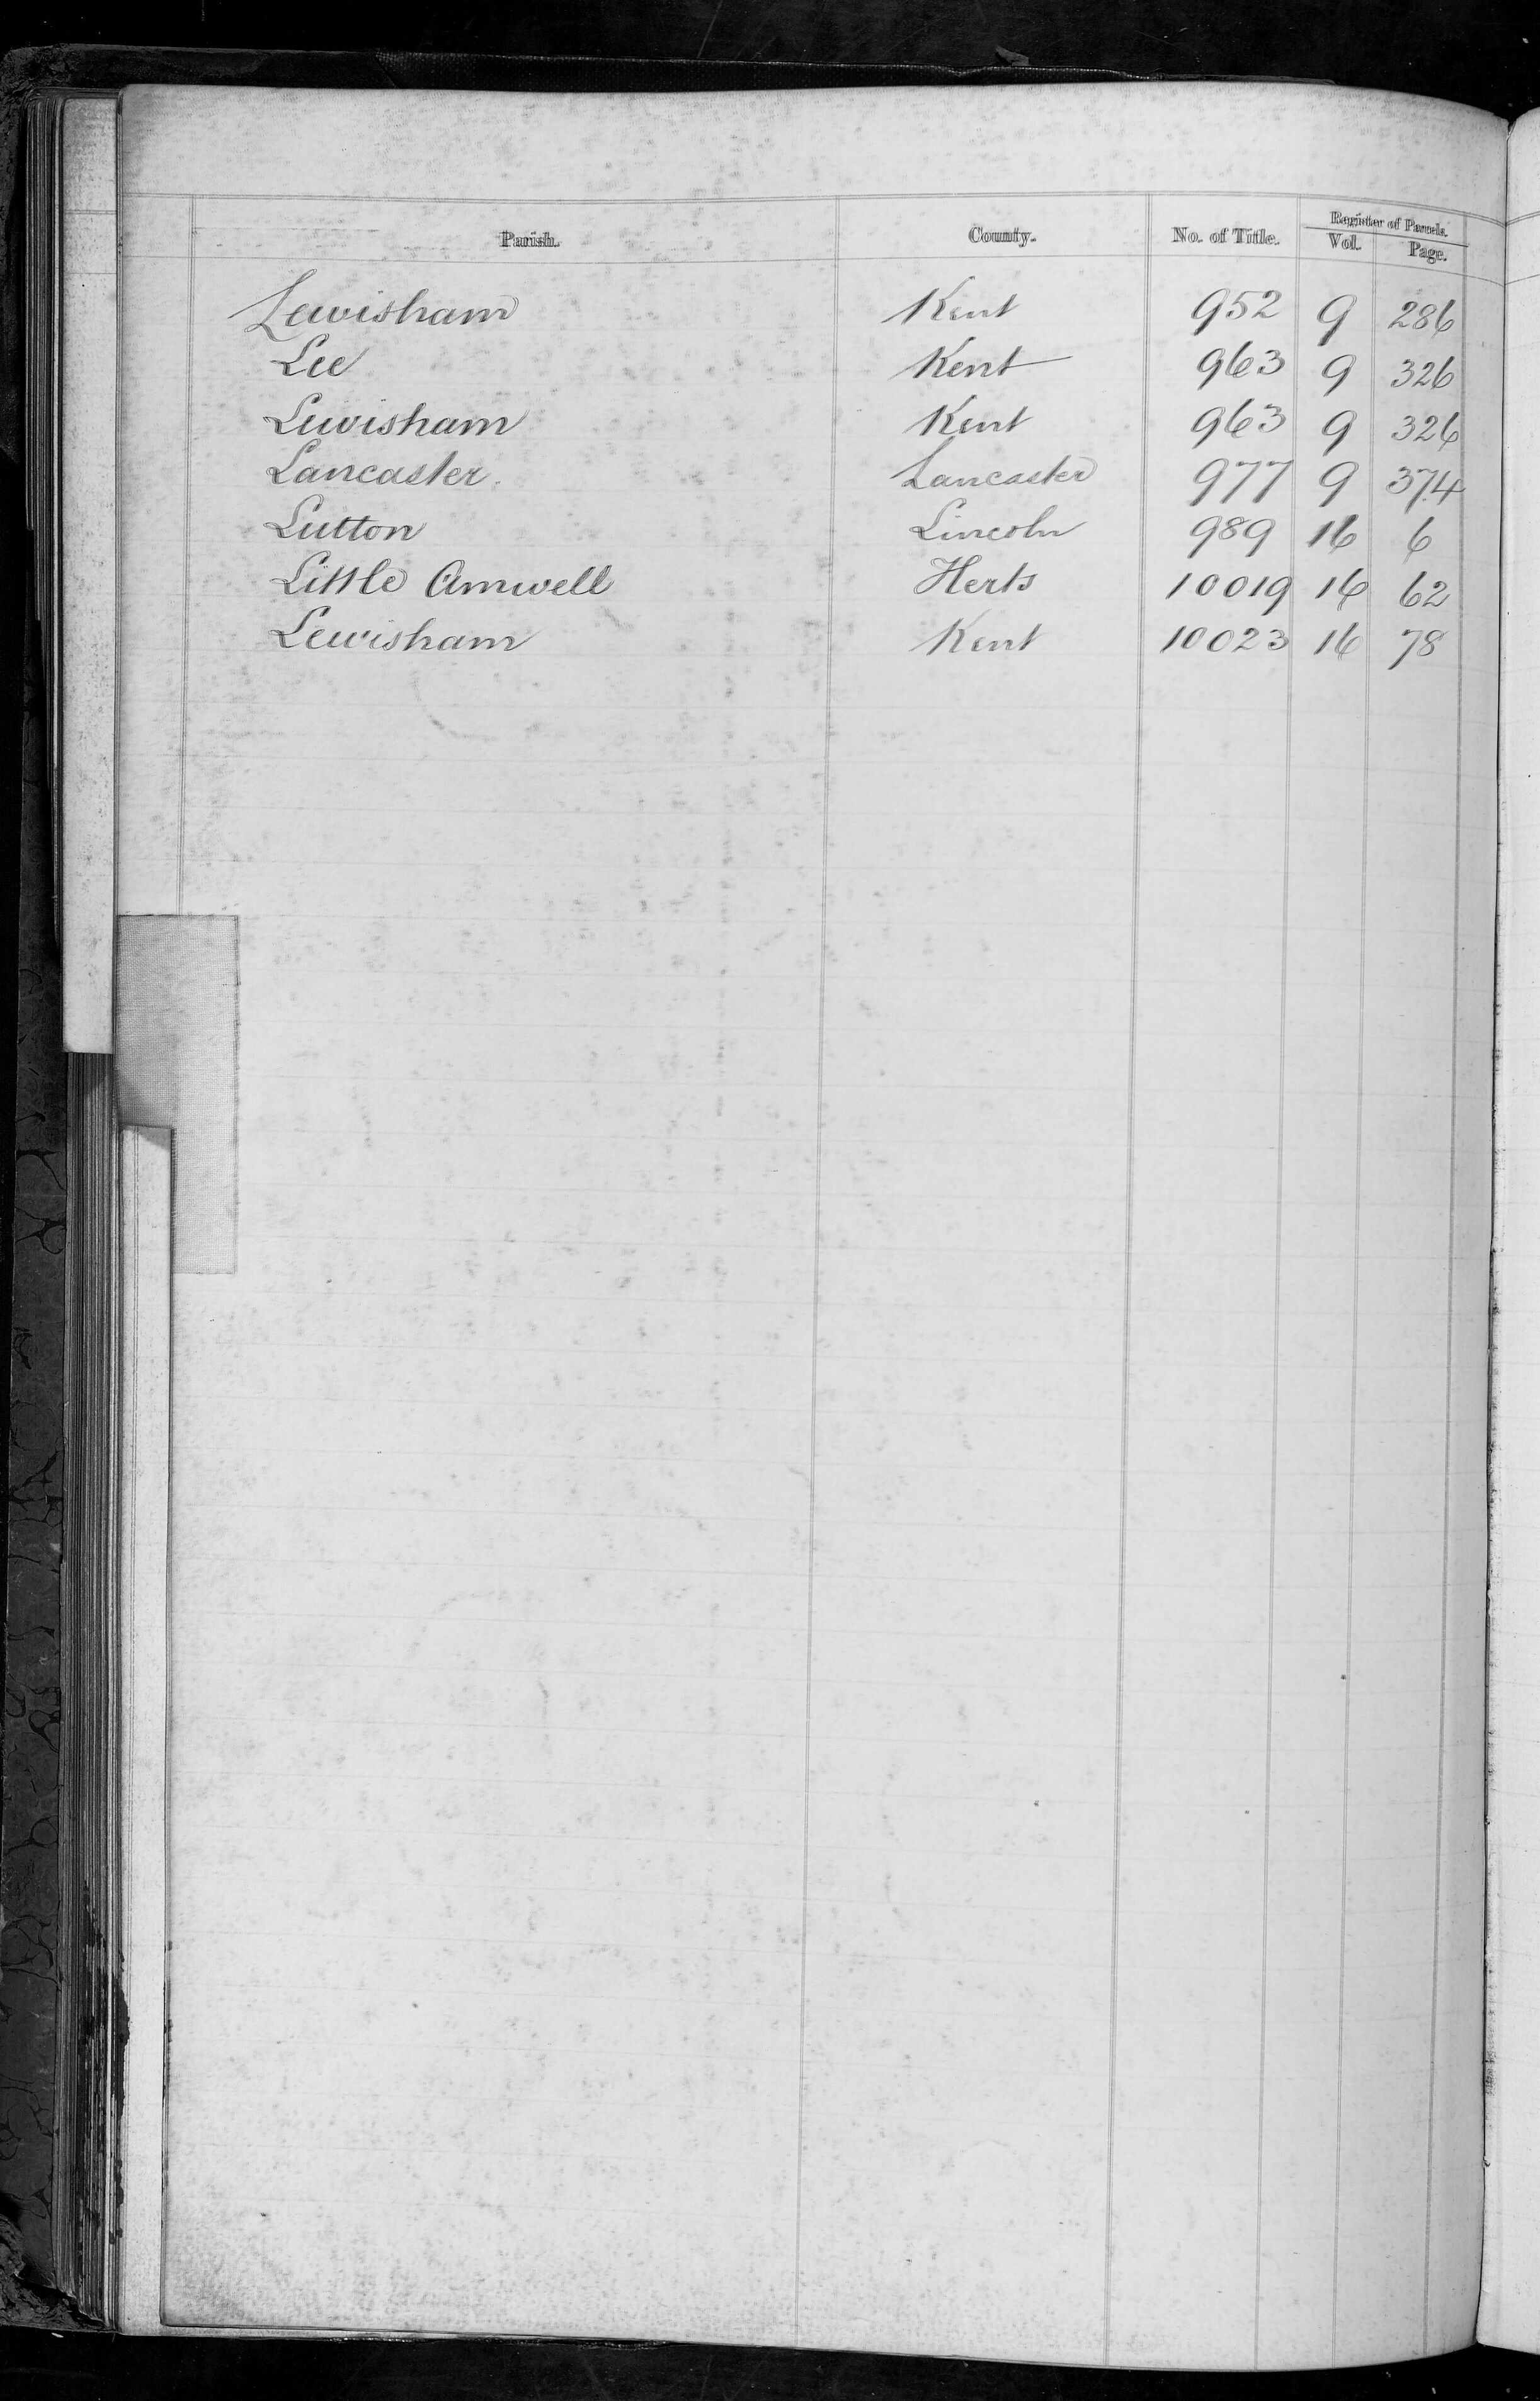 Parish. County. No. of Title. Register of Parcels.
Vol. Page.
Lewisham Kent 952 9 286
Lee Kent 963 9 326
Lewisham Kent 963 9 326
Lancaster. Lancaster 977 9 374
Lutton Lincoln 989 16 6
Little Amwell Herts 10019 16 62
Lewisham Kent 10023 16 78